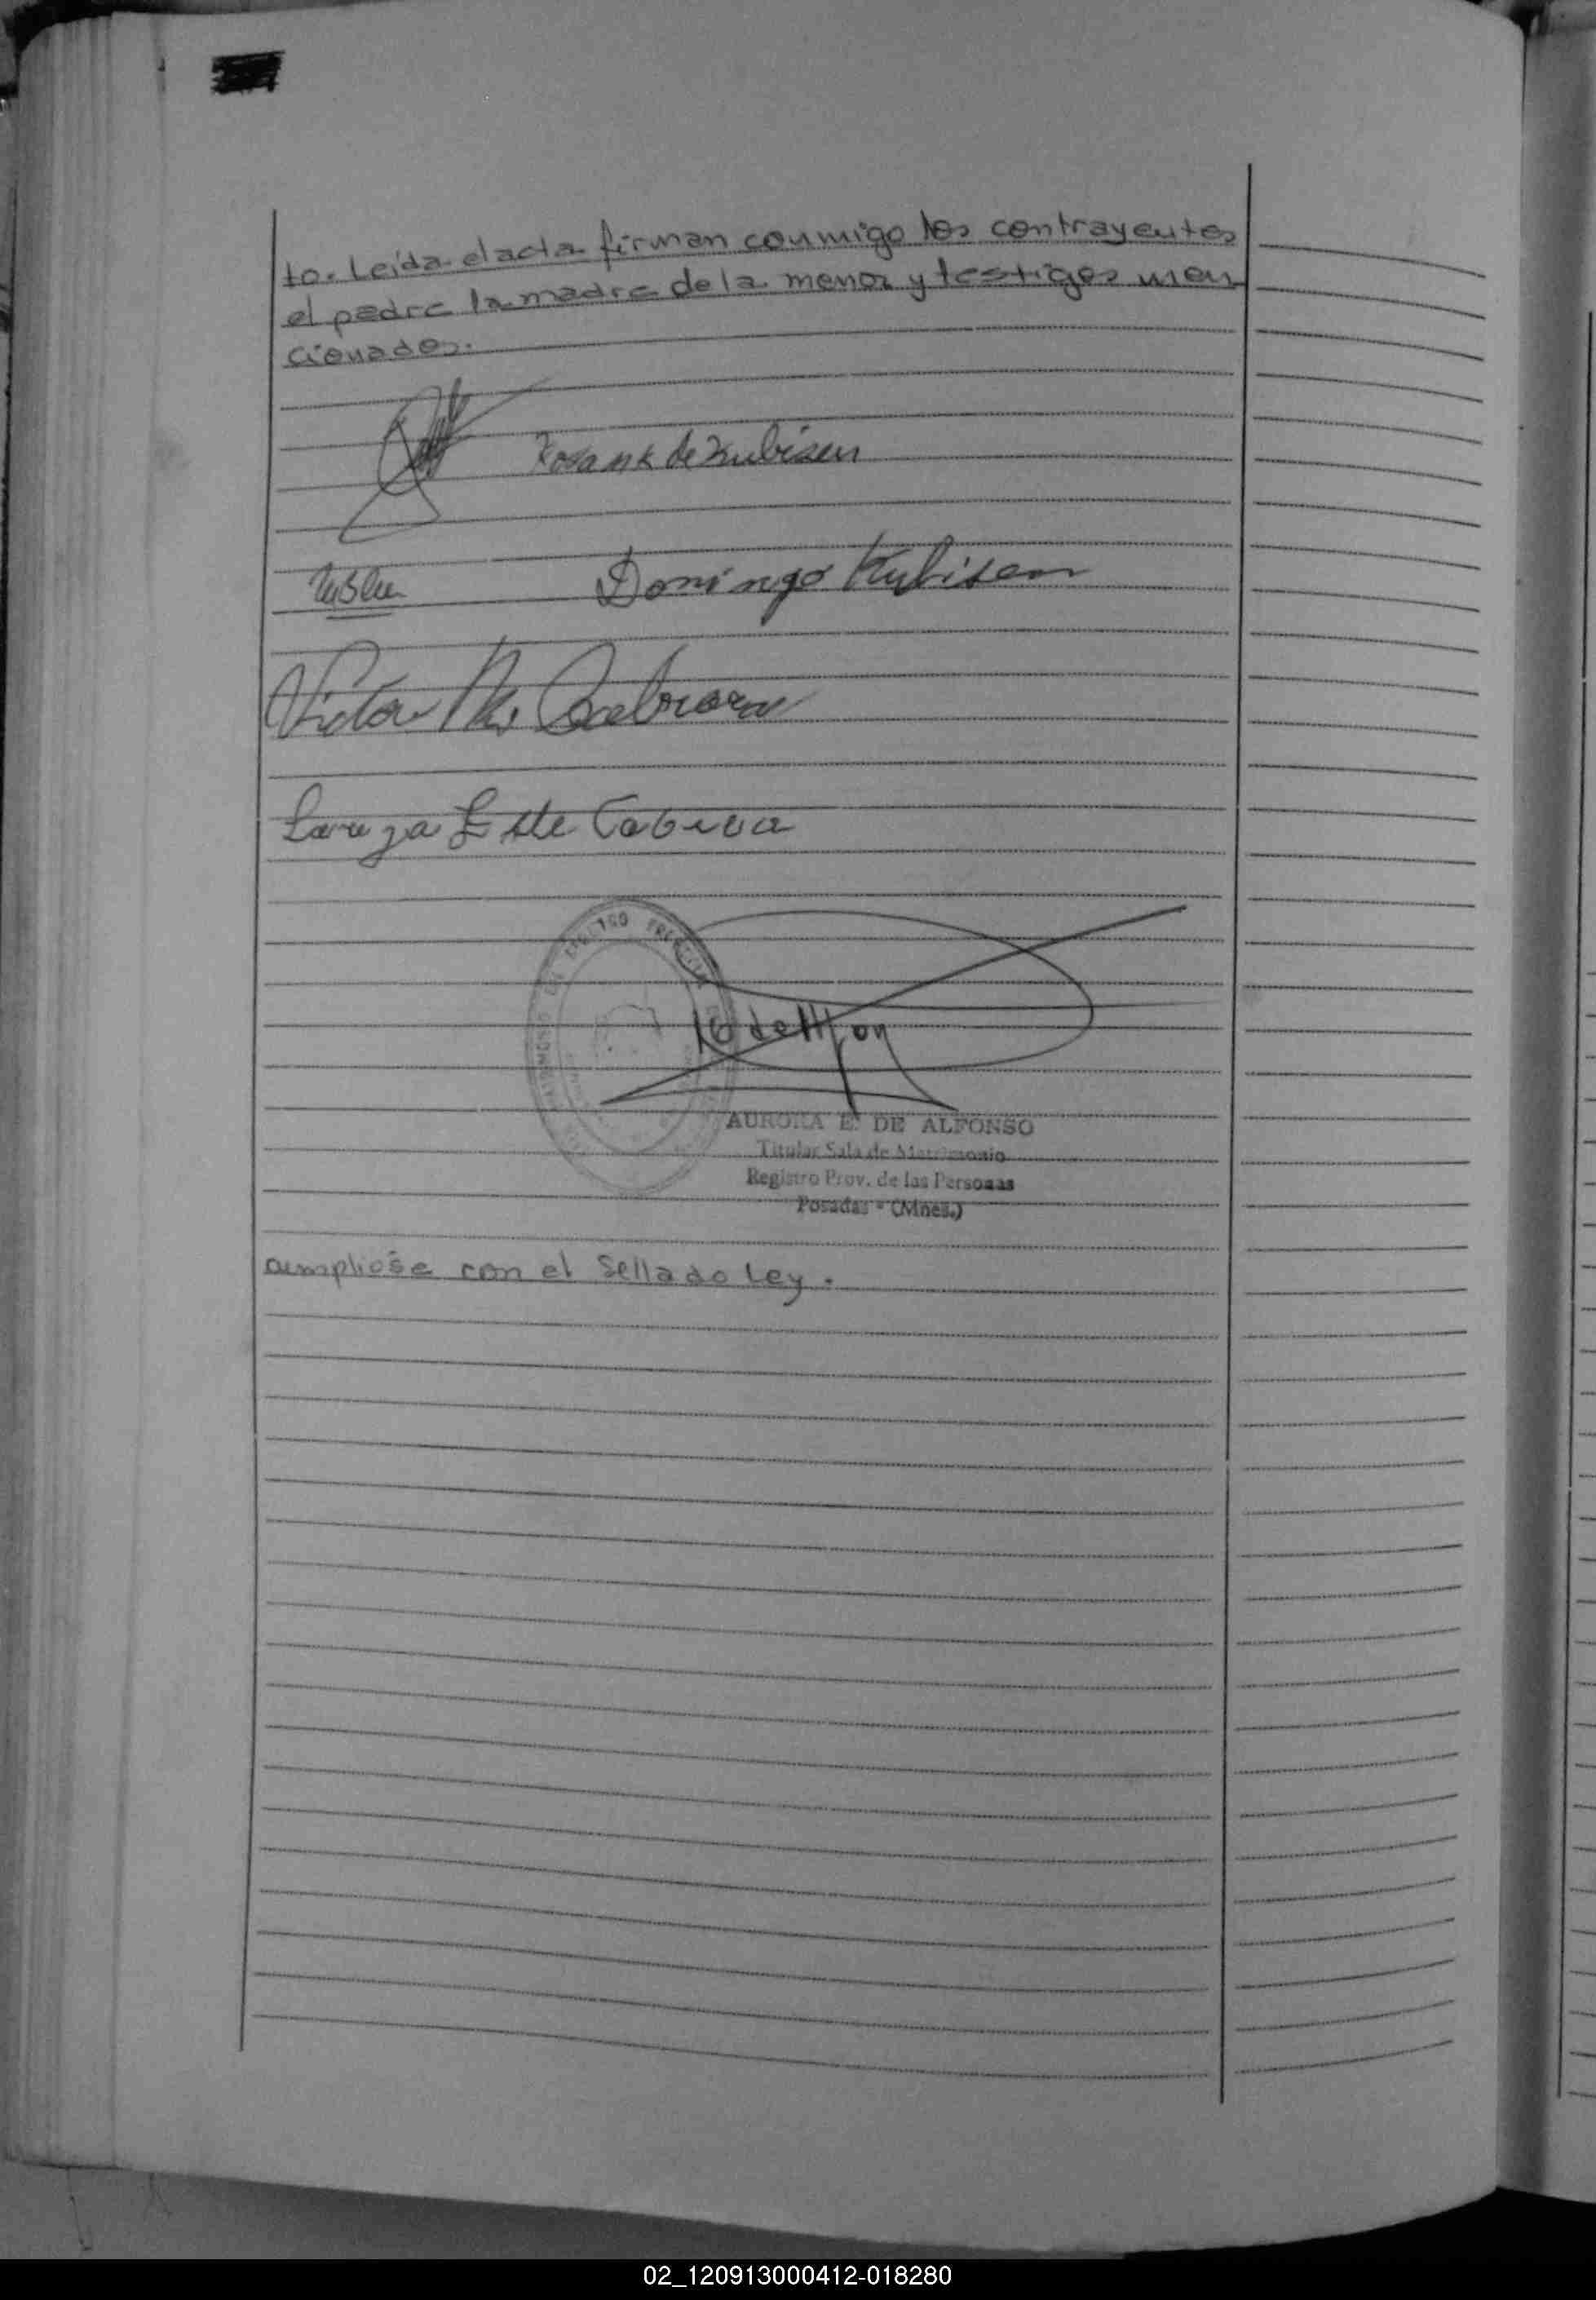 to. Leída el acta firman conmigo los contrayentes
el padre la madre de la menor y testigos men
cionados.
de Kubisen
Domingo Kubisen
Victor Cabrera
AURORA E. DE ALFONSO
Titular Sala de Matrimonio
Registro Prov. de las Personas
Posadas - (Mnes.)
cumplióse con el Sellado Ley.
02_120913000412-018280